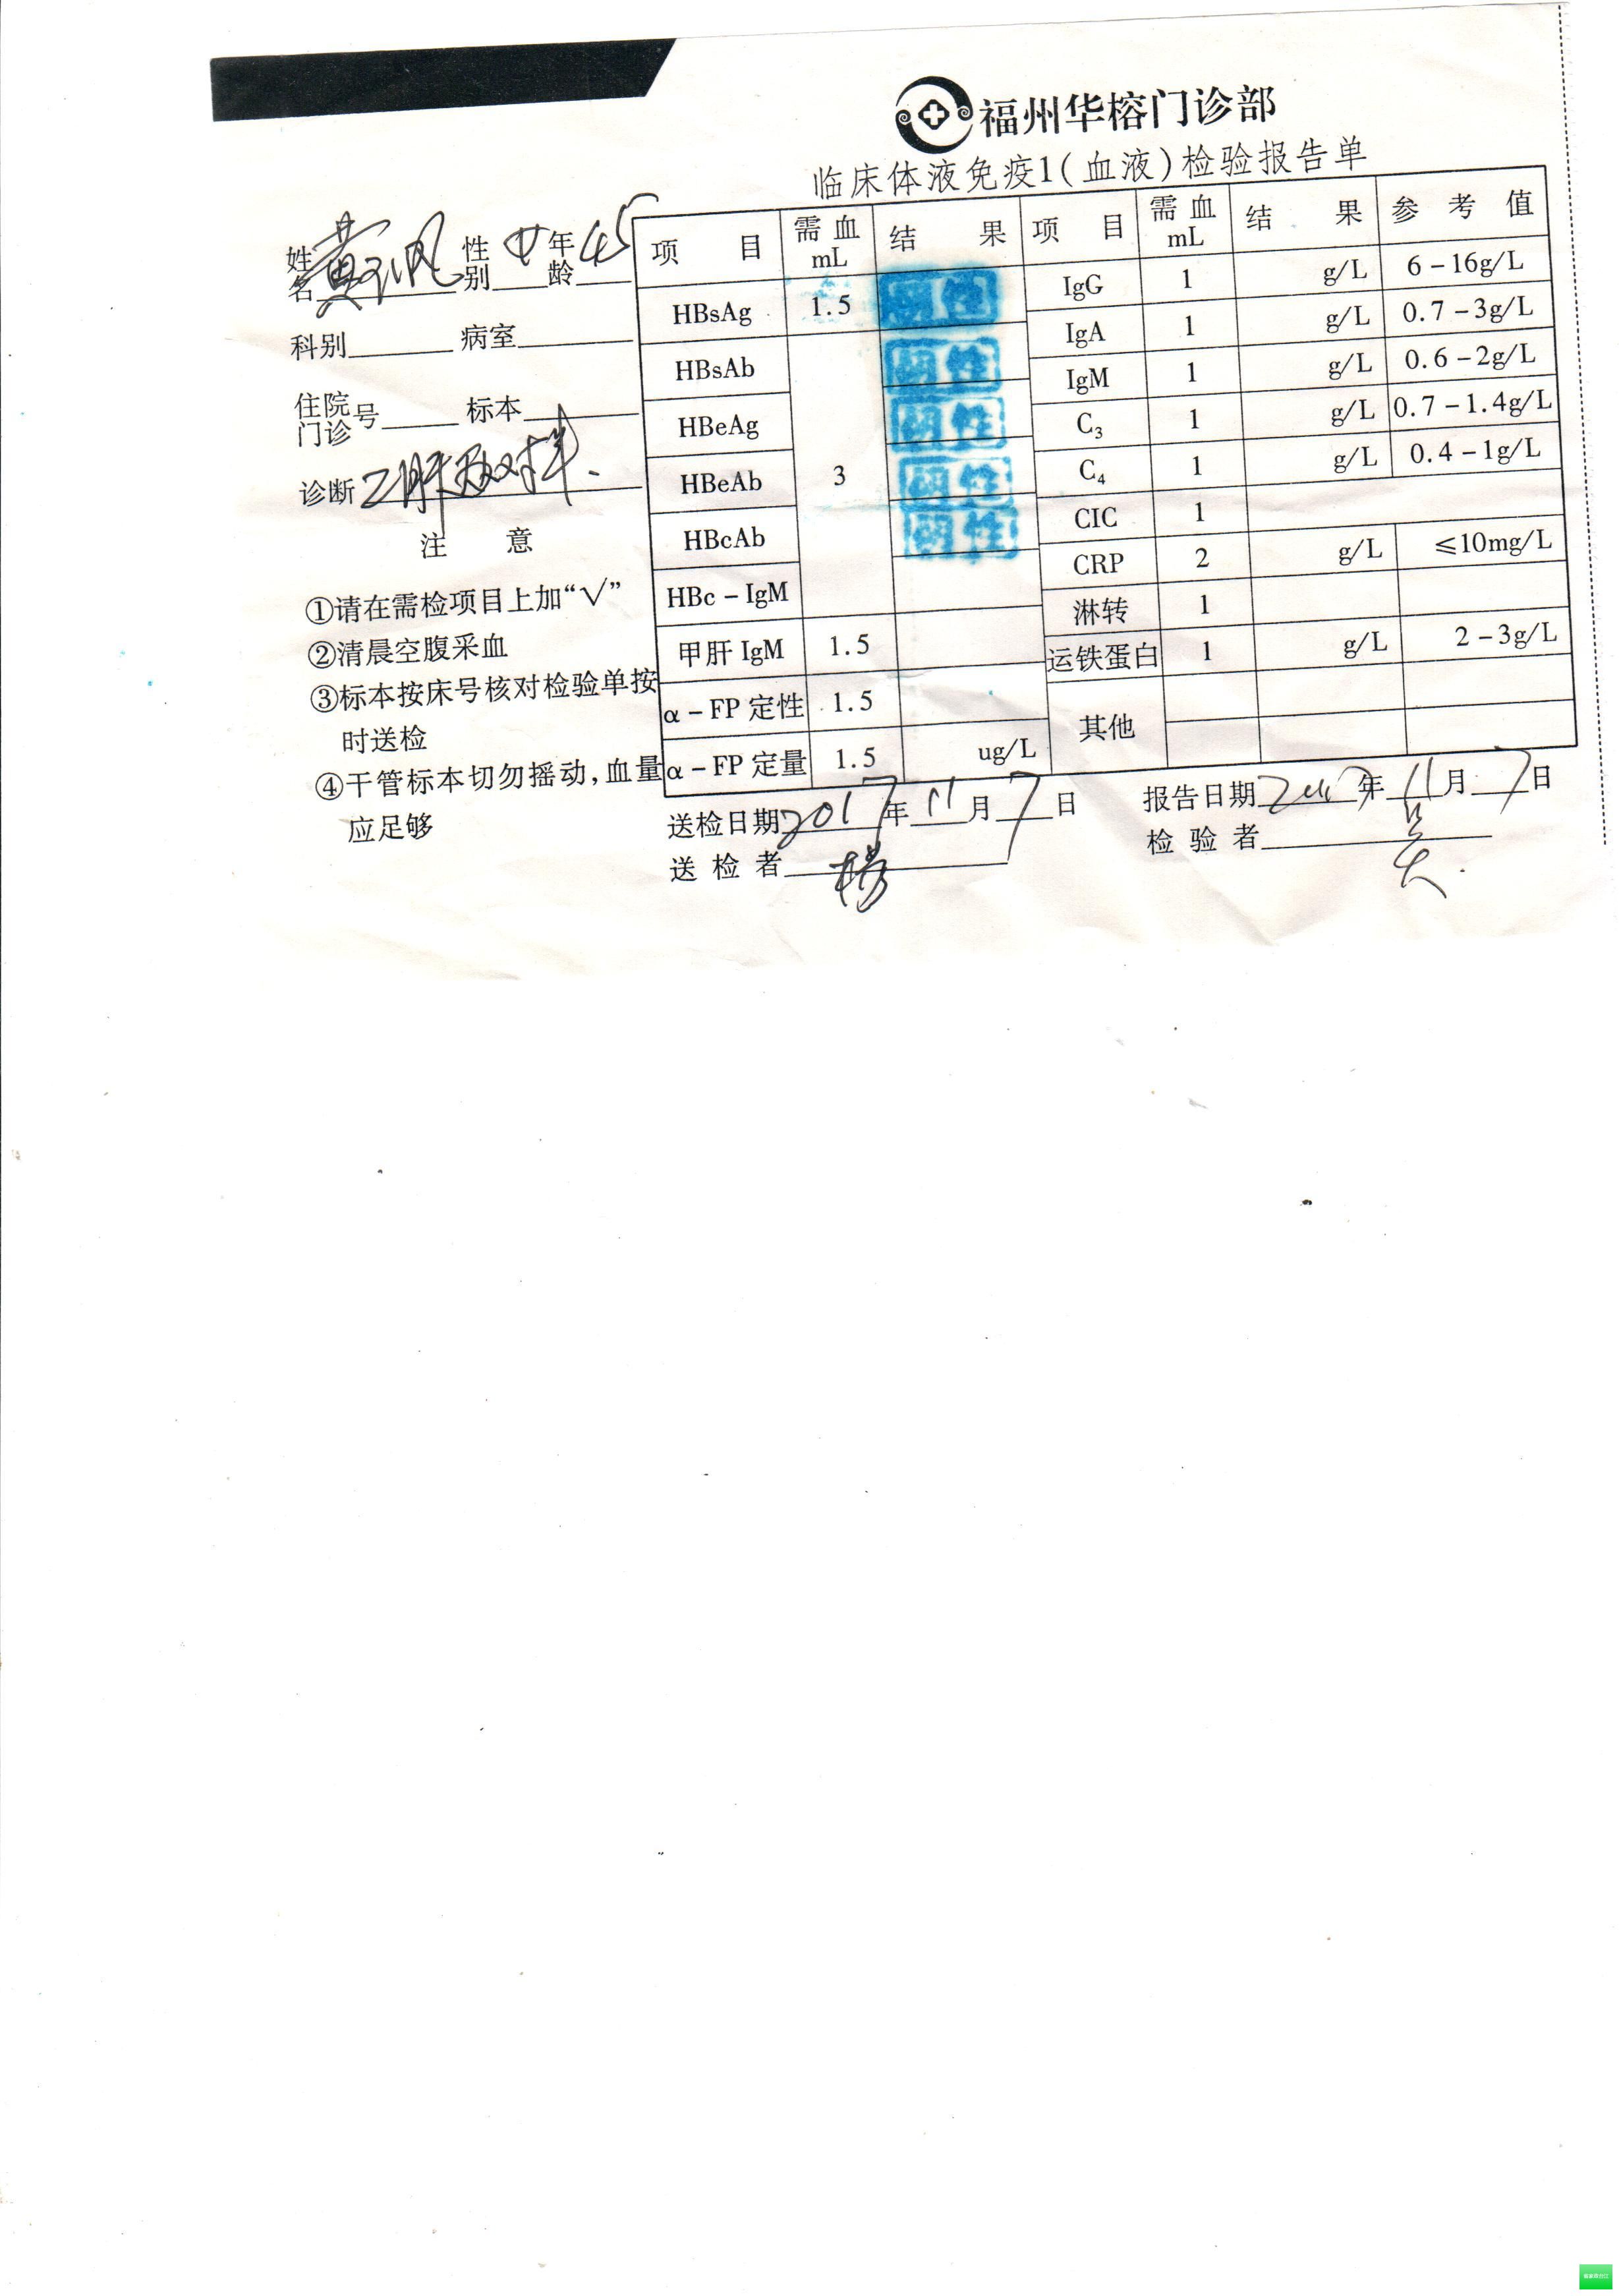 福州华榕门诊部
临床体液免疫1(血液)检验报告单
姓名 黄 性别 女 年龄 45
科别 病室
住院门诊号 标本
诊断 乙肝两对半.
注 意
①请在需检项目上加“√”
②清晨空腹采血
③标本按床号核对检验单按
时送检
④干管标本切勿摇动,血量
应足够
项 目 需血 mL 结 果 项 目 需血 mL 结 果 参 考 值
HBsAg 1.5 阴性 IgG 1 g/L 6-16g/L
HBsAb 阴性 IgA 1 g/L 0.7-3g/L
HBeAg 阴性 IgM 1 g/L 0.6-2g/L
HBeAb 3 阴性 C3 1 g/L 0.7-1.4g/L
HBcAb 阴性 C4 1 g/L 0.4-1g/L
HBc-IgM CIC 1
甲肝 IgM 1.5 CRP 2 g/L ≤10mg/L
α-FP 定性 1.5 淋转 1
α-FP 定量 1.5 ug/L 运铁蛋白 1 g/L 2-3g/L
其他
送检日期 2017 年 11 月 7 日 报告日期 2017 年 11 月 7 日
送 检 者 检 验 者 吴